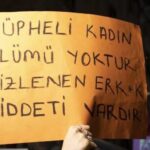 ÜPHELİ KADIN
LÜMÜ YOKTUR
İZLENEN ERK*K
İDDETİ VARDIR